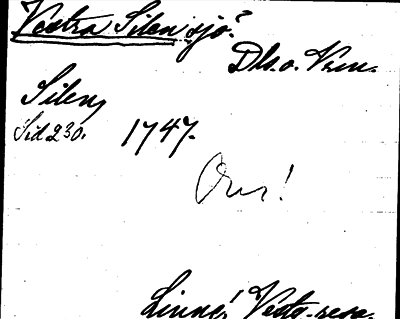 Vestra Silen sjö.
Dls. o. Vrm.
Silen,
Sid 230. 1747.
Linnés Vestg-resa.